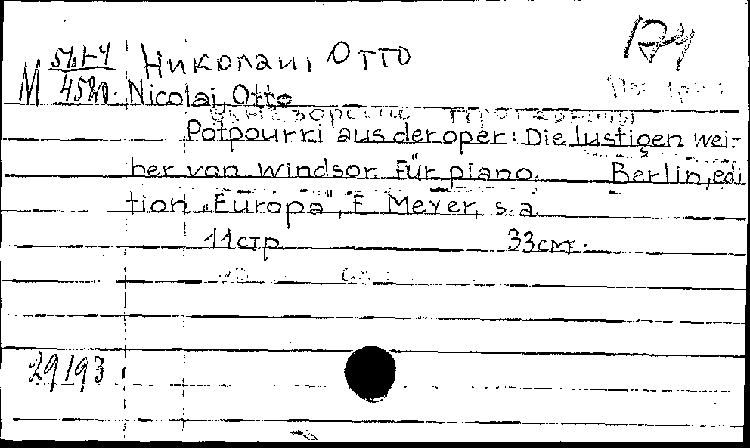 Николаи, Отто
M
Nicolai, Otto
Potpourri aus der oper: Die lustigen wei-
ber von windsor. Für piano. Berlin, edi
tion „Europa", E Meyer, s.a.
11стр 33см.
29193